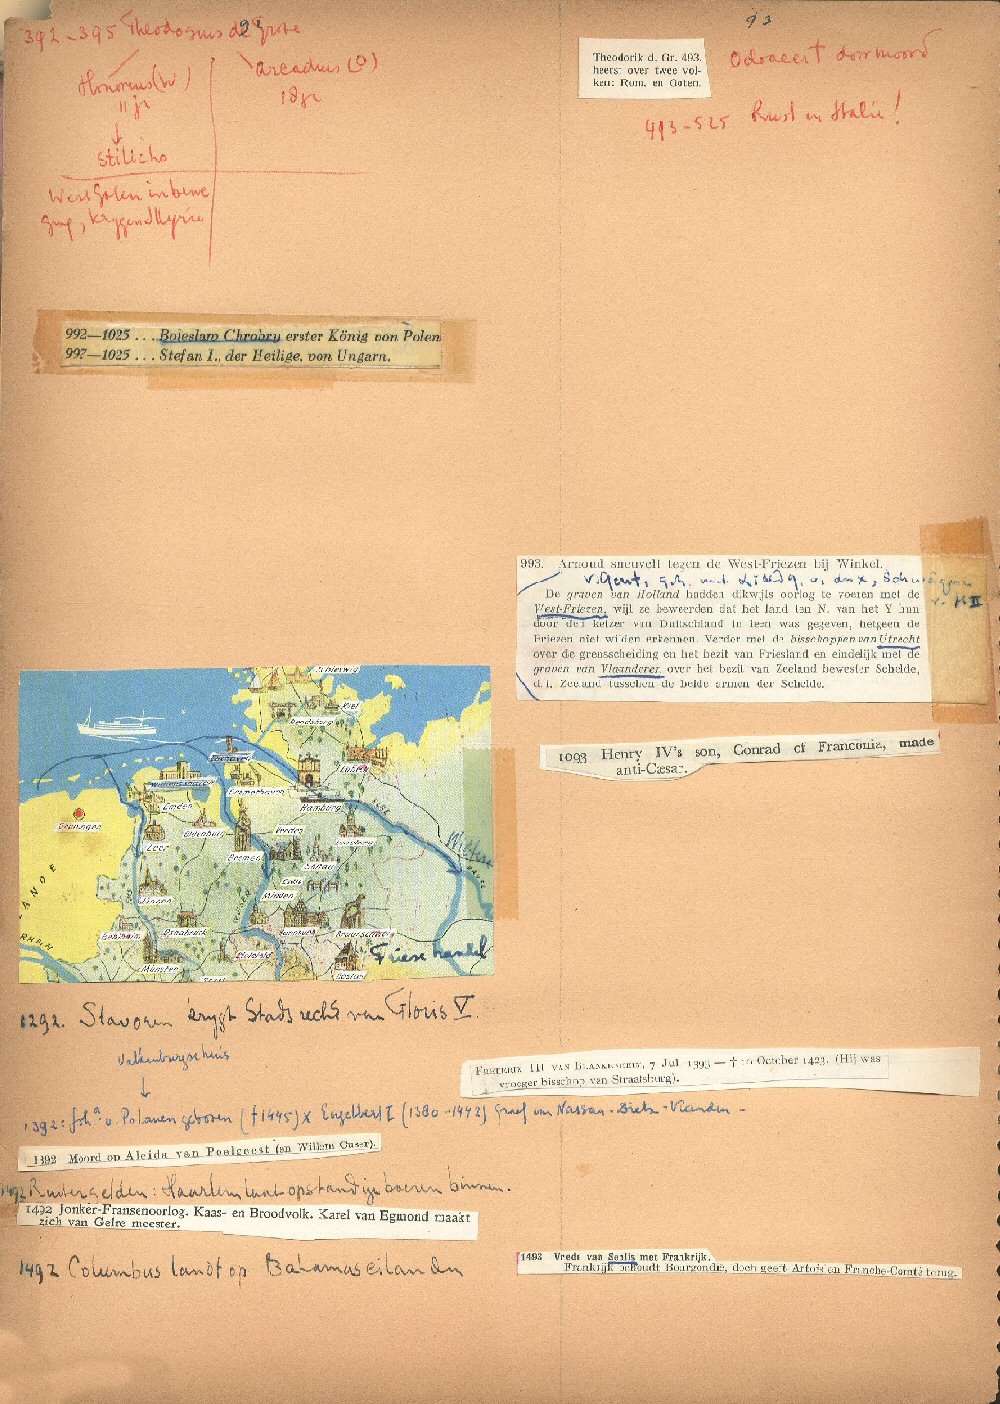 392-395 Theodosius de Grote
92
Honorius (W)
11 jr
Arcadius (O)
18 jr
Stilicho
West Goten in bewe
ging, krygen Illyrie
992—1025 . . . Boleslaw Chrobry erster König von Polen
997—1025 . . . Stefan I., der Heilige, von Ungarn.
Schleswig
Kiel
Rendsburg
Lübeck
Bremerhaven
Hamburg
Elbe
Emden
Groningen
Oldenburg
Leer
Bremen
Verden
Lüneburg
Celle
Minden
Lingen
Osnabrück
Hannover
Braunschweig
Bielefeld
Münster
Goslar
LANDE
RHEIN
Friese handel
1292. Stavoren krygt Stadsrecht van Floris V.
Valkenburgse huis
1392: Joh.a v. Polanen geboren († 1445) x Engelbert I (1380-1442) Graaf van Nassau-Dietz-Vianden -
1392 Moord op Aleida van Poelgeest (en Willem Cuser).
1492 Ruitergelden: Haarlem laat opstandige boeren binnen.
1492 Jonker-Fransenoorlog. Kaas- en Broodvolk. Karel van Egmond maakt
zich van Gelre meester.
1492 Columbus landt op Bahamaseilanden
93
Theodorik d. Gr. 493.
heerst over twee vol-
ken: Rom. en Goten.
Odoacer † door moord
493-525 Rust in Italië!
993. Arnoud sneuvelt tegen de West-Friezen bij Winkel.
v. Gent, geh. met
De graven van Holland hadden dikwijls oorlog te voeren met de
West-Friezen, wijl ze beweerden dat het land ten N. van het Y hun
door den keizer van Duitschland in leen was gegeven, hetgeen de
Friezen niet wilden erkennen. Verder met de bisschoppen van Utrecht
over de grensscheiding en het bezit van Friesland en eindelijk met de
graven van Vlaanderen over het bezit van Zeeland bewester Schelde,
d.i. Zeeland tusschen de beide armen der Schelde.
1093 Henry IV's son, Conrad of Franconia, made
anti-Cæsar.
FREDERIK III VAN BLANKENHEIM, 7 Jul. 1393 — † 10 October 1423. (Hij was
vroeger bisschop van Straatsburg).
1493 Vrede van Senlis met Frankrijk.
Frankrijk behoudt Bourgondië, doch geeft Artois en Franche-Comté terug.